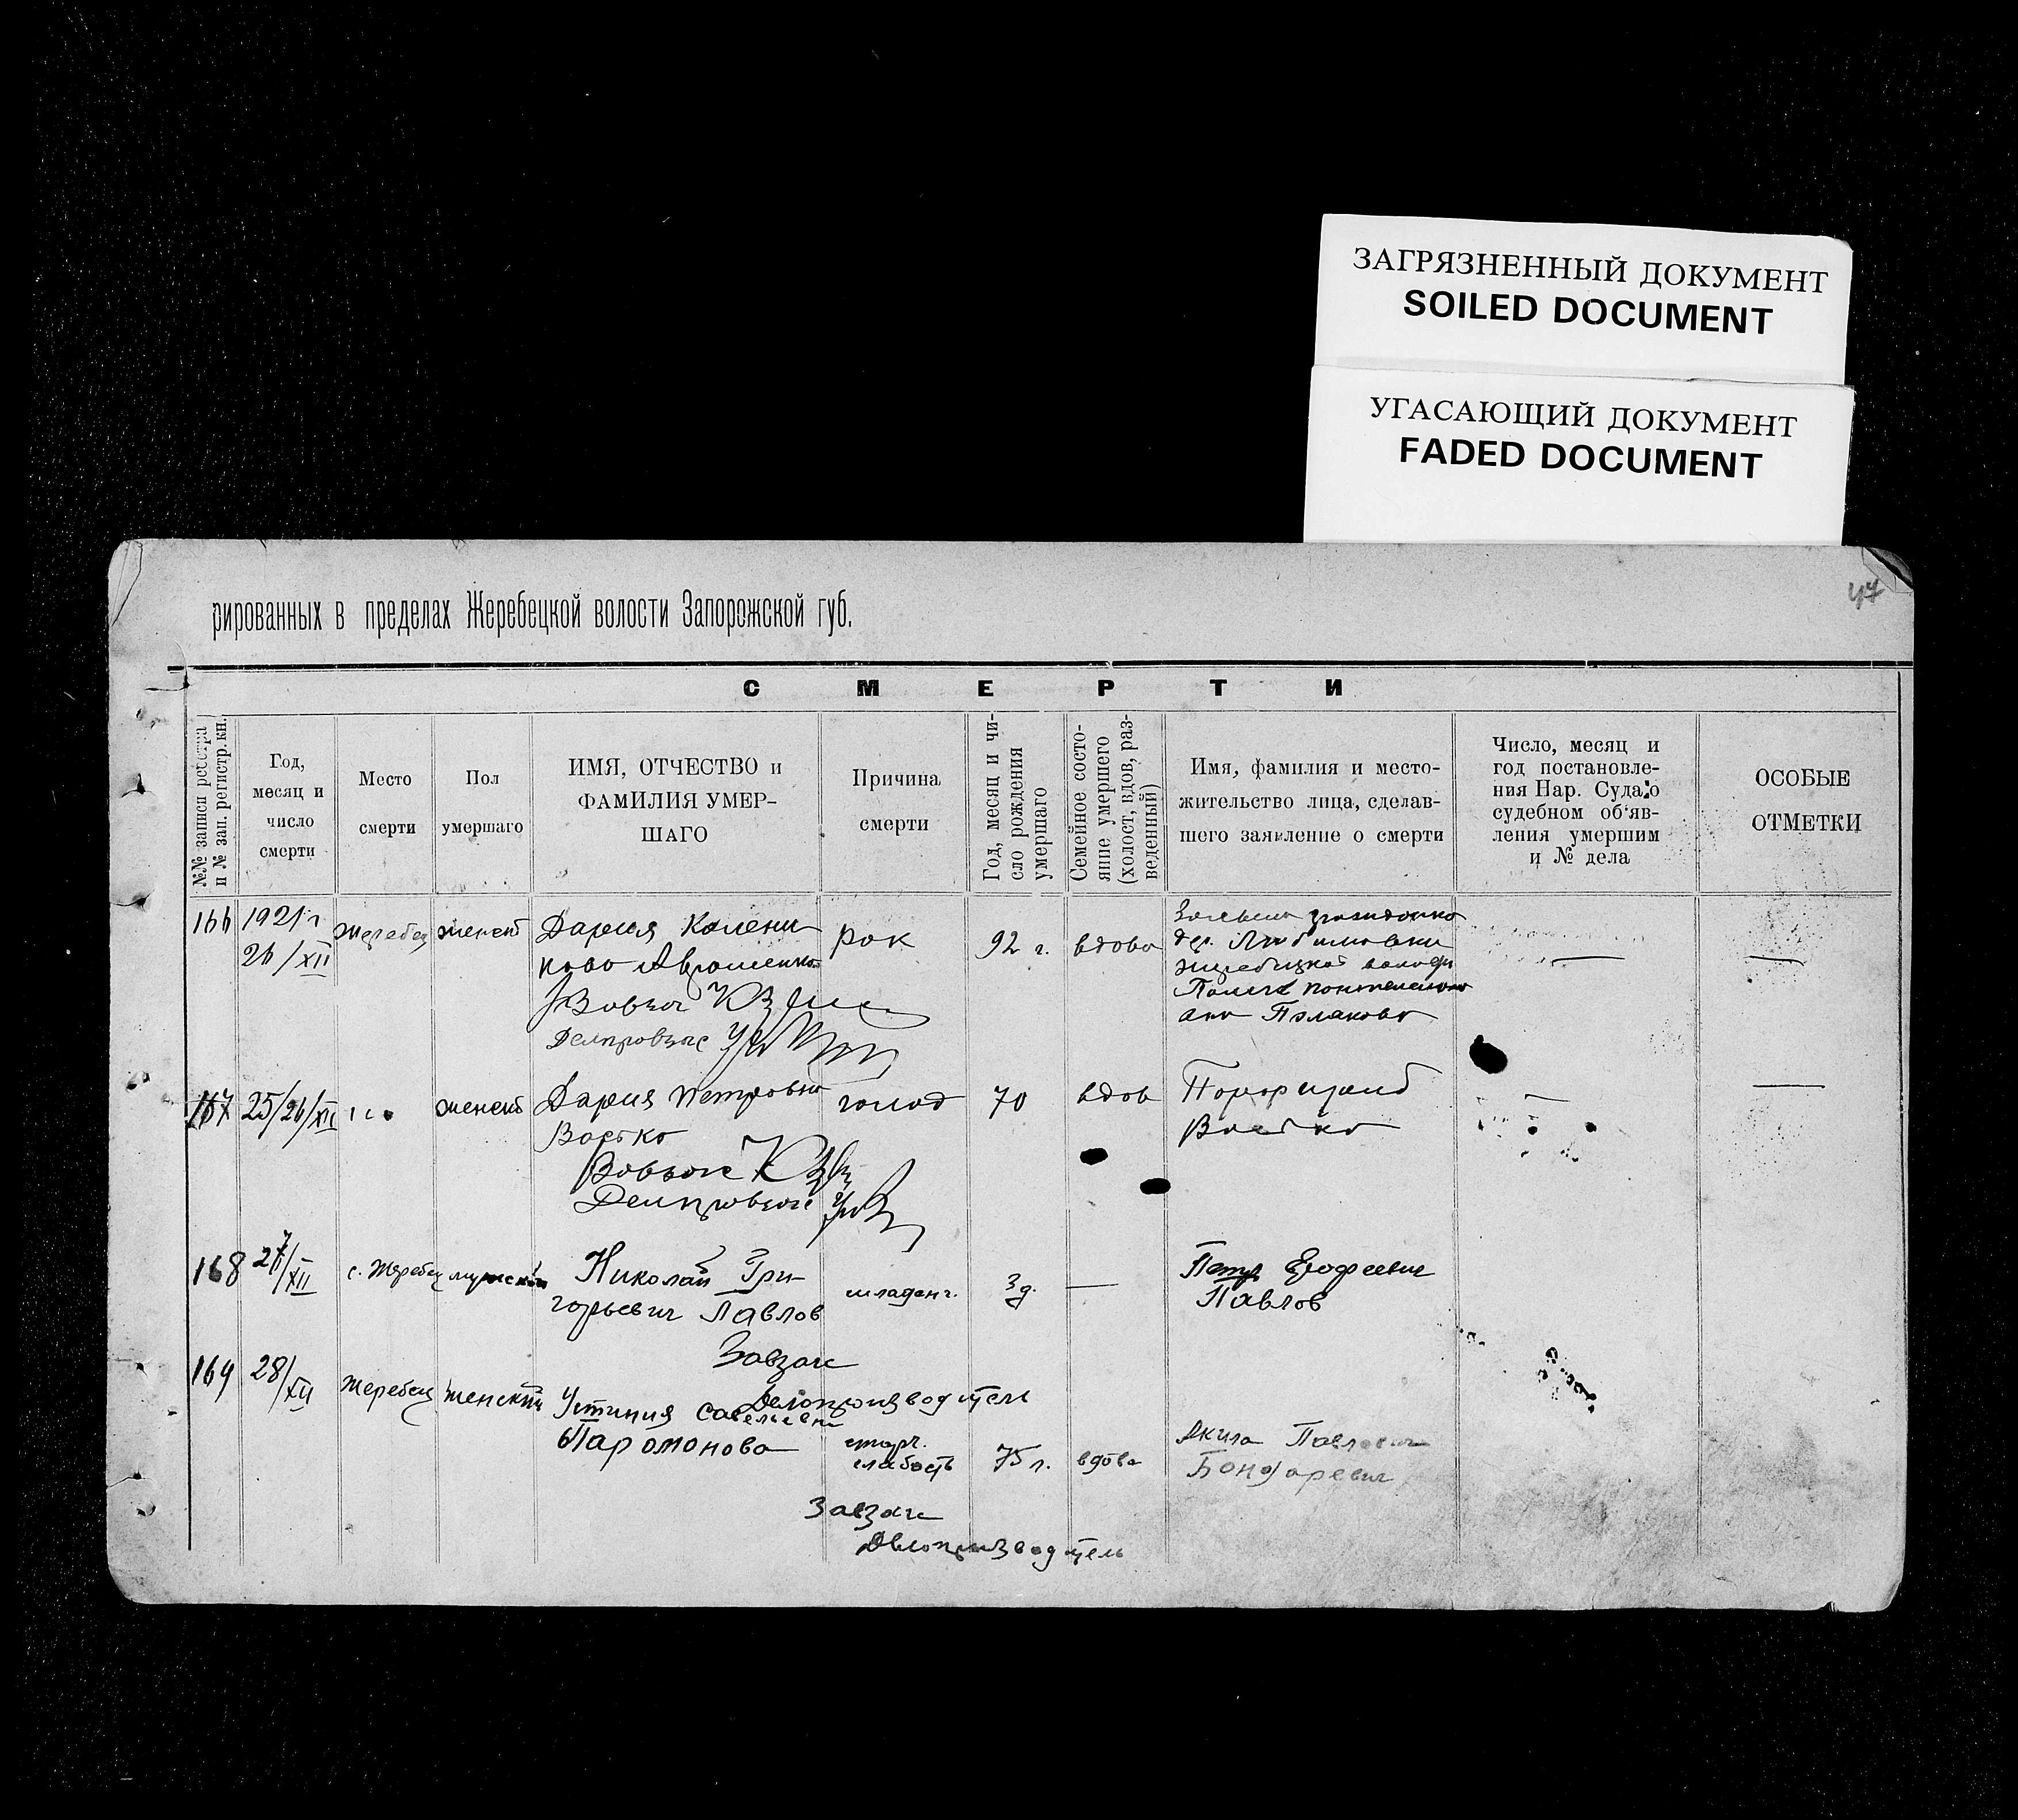 ЗАГРЯЗНЕННЫЙ ДОКУМЕНТ
SOILED DOCUMENT
УГАСАЮЩИЙ ДОКУМЕНТ
FADED DOCUMENT
47
рированных в пределах Жеребецкой волости Запорожской губ.
СМЕРТИ
№№ записи реестра
и № зап. регистр. кн.
Год,
месяц и
число
смерти
Место
смерти
Пол
умершаго
ИМЯ, ОТЧЕСТВО и
ФАМИЛИЯ УМЕР-
ШАГО
Причина
смерти
Год, месяц и чи-
сло рождения
умершаго
Семейное состо-
яние умершего
(холост, вдов, раз-
веденный)
Имя, фамилия и место-
жительство лица, сделав-
шего заявление о смерти
Число, месяц и
год постановле-
ния Нар. Суда о
судебном об'яв-
ления умершим
и № дела
ОСОБЫЕ
ОТМЕТКИ
166
1921 г
26/XII
Жеребец
женск
Дария
рак
92 г.
вдова
167
25/26/XII
женск
Дария Петровна
голод
70
вдов
168
27/XII
с. Жеребец
мужской
Николай Гри-
горьевич Павлов
младенч.
3 д.
Петр Ерофеевич
Павлов
Завзаг
Делопроизводитель
169
28/XII
Жеребец
женский
Устиния Савельевна
Парамонова
старч.
слабость
75 л.
вдова
Акила Павлович
Бондаревич
Завзаг
Делопроизводитель